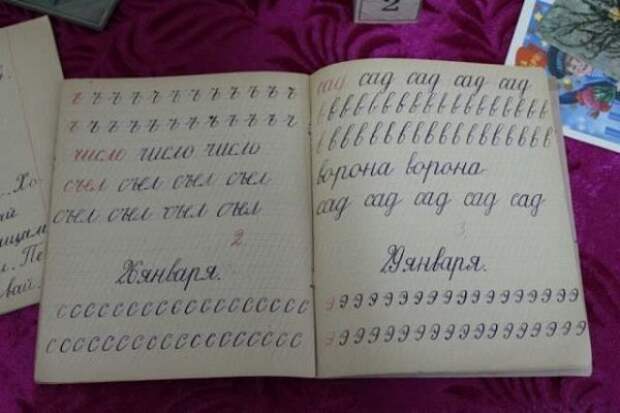 ъ ъ ъ ъ ъ ъ ъ ъ ъ ъ ъ ъ
ъ ъ ъ ъ ъ ъ ъ ъ ъ ъ ъ ъ
число число число
съел съел съел съел
съел съел съел съел
2
26 января.
с с с с с с с с с с с с с с с с с
с с с с с с с с с с с с с с с с с
сад сад сад сад сад
в в в в в в в в в в в в в в в в в в
в в в в в в в в в в в в в в в в в в
ворона ворона
сад сад сад сад сад
3
29 января.
э э э э э э э э э э э э э э э э э э
э э э э э э э э э э э э э э э э э э
2